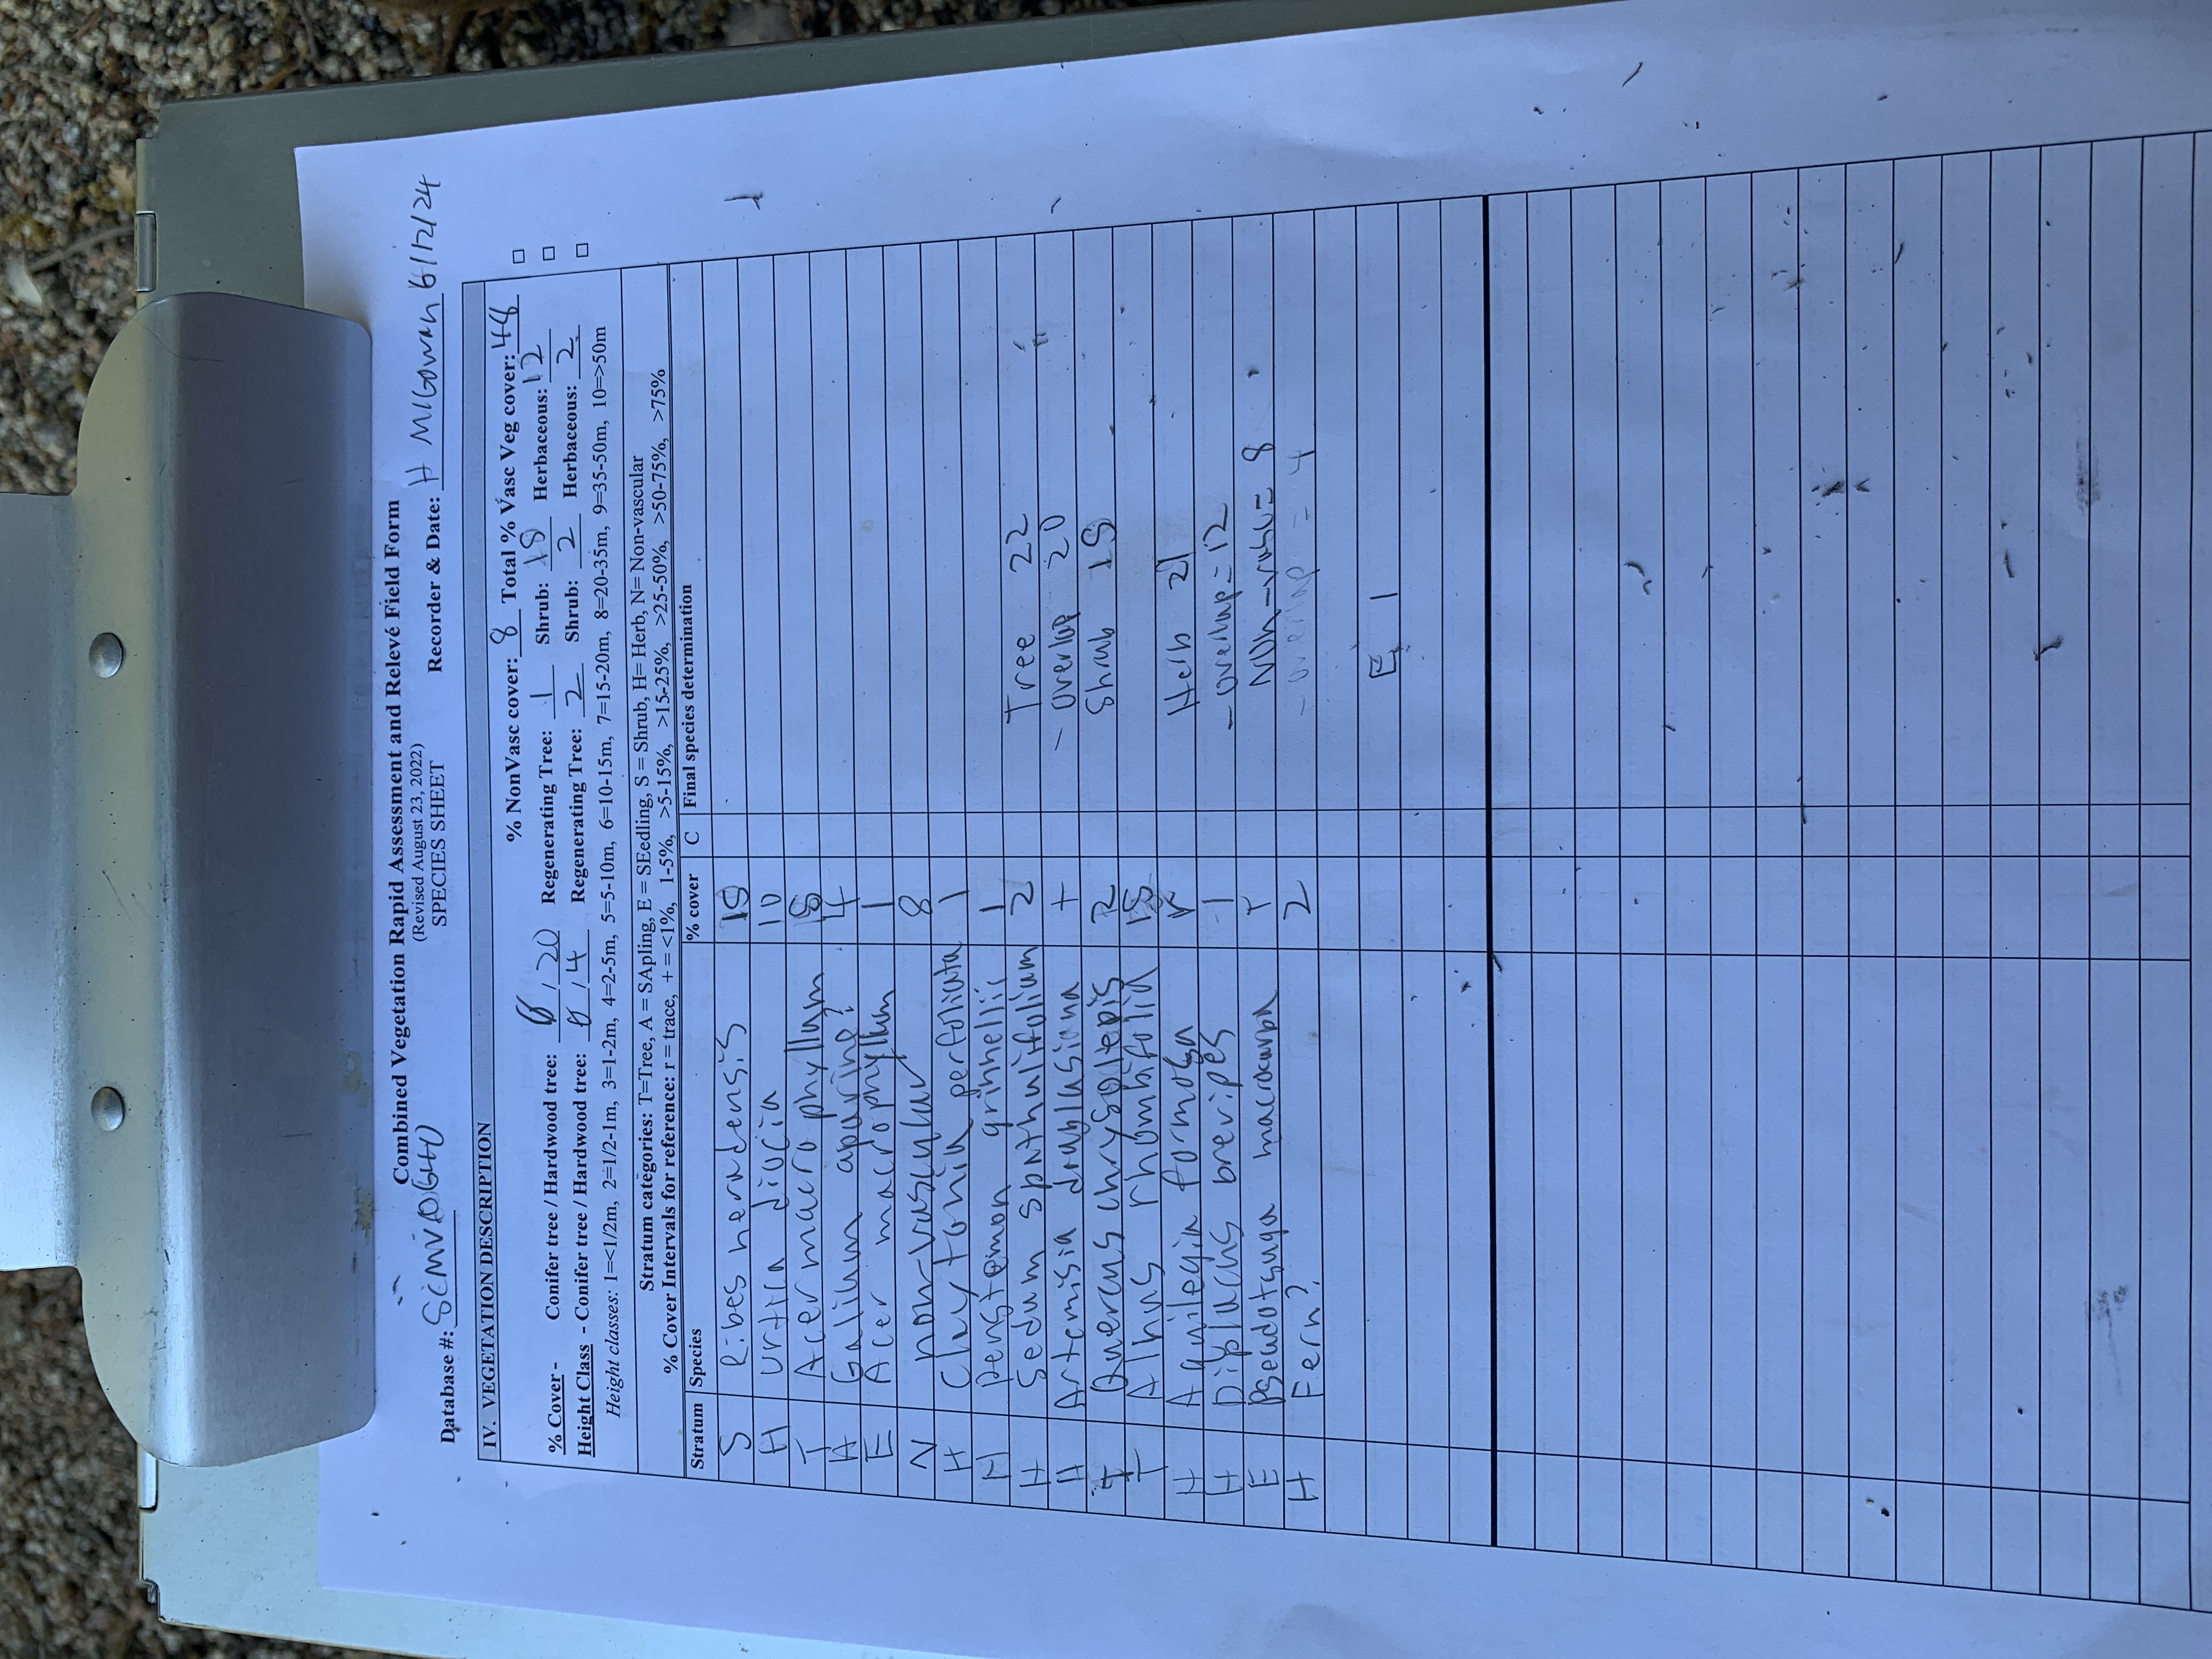 Combined Vegetation Rapid Assessment and Relevé Field Form
(Revised August 23, 2022)
SPECIES SHEET
Database #: Recorder & Date: H M/12/24
IV. VEGETATION DESCRIPTION
% NonVasc cover: 8 Total % Vasc Veg cover: 48
% Cover - Conifer tree / Hardwood tree: 0 / 20 Regenerating Tree: 1 Shrub: 18 Herbaceous: 12
Height Class - Conifer tree / Hardwood tree: 0 / 4 Regenerating Tree: 2 Shrub: 2 Herbaceous: 2
Height classes: 1=<1/2m, 2=1/2-1m, 3=1-2m, 4=2-5m, 5=5-10m, 6=10-15m, 7=15-20m, 8=20-35m, 9=35-50m, 10=>50m
Stratum categories: T=Tree, A = SApling, E = SEedling, S = Shrub, H= Herb, N= Non-vascular
% Cover Intervals for reference: r = trace, + = <1%, 1-5%, >5-15%, >15-25%, >25-50%, >50-75%, >75%
Stratum Species % cover C Final species determination
S Ribes
H Urtica diocia 10
T Acer macrophyllum
H Galium aparine? 4
E Acer macrophyllum 1
N non-vascular 8
H Claytonia perfoliata 1
H penstemon grinnellii 1
H Sedum spathulifolium 2 Tree 22
H Artemisia douglasiana + - overlap 20
T Quercus chrysolepis 2 Shrub 18
T Alnus rhombifolia 18
H Aquilegia formosa r Herb 21
H Diplacus brevipes 1 - overlap = 12
E Pseudotsuga macrocarpa r Non-vasc = 8
H Fern? 2 - overlap = 4
E 1